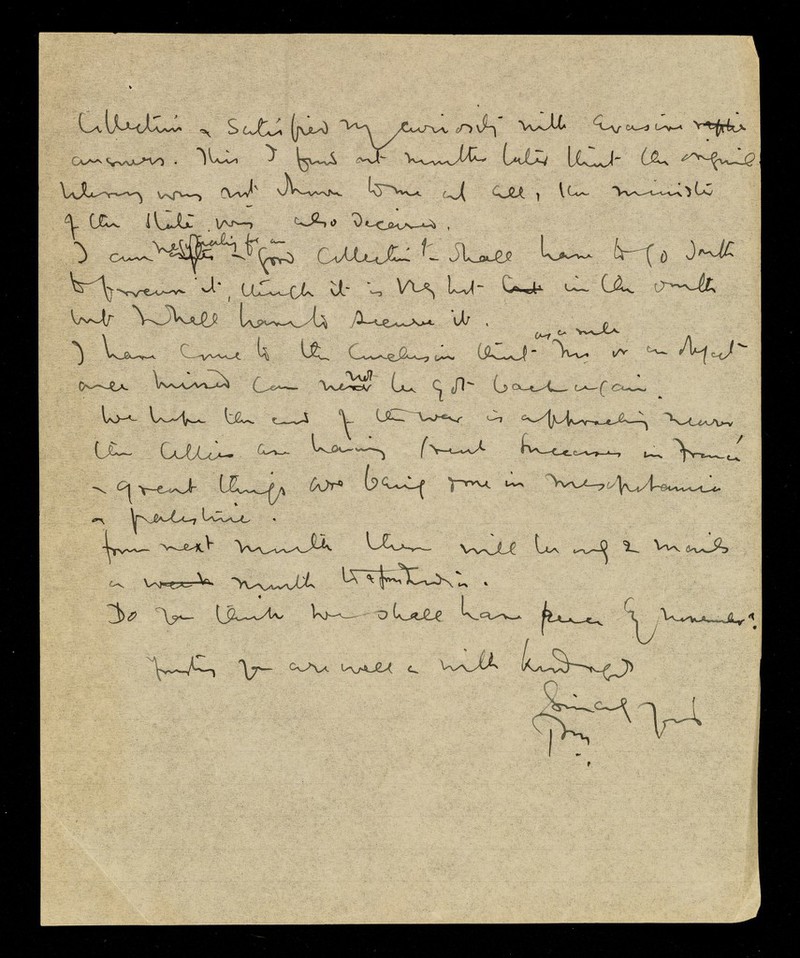 Collection & satisfied my curiosity with evasive replie
answers. This I found out months later that the original
library was not shown to me at all, the minister
of the State was also deceived.
I am after negotiating for an - good collection & shall have to go South
to procure it, though it is very hot but in the south
but I shall have to secure it.
I have come to the conclusion that as a rule Mss or an object
once missed can never not be got back again.
We hope the end of the war is approaching nearer,
the Allies are having great successes in France
& great things are being done in Mesopotamia
& Palestine.
from next month there will be only 2 mails
a week month to & from India.
Do you think we shall have peace by November?
Trusting you are well & with kind regds
Sincerely yours